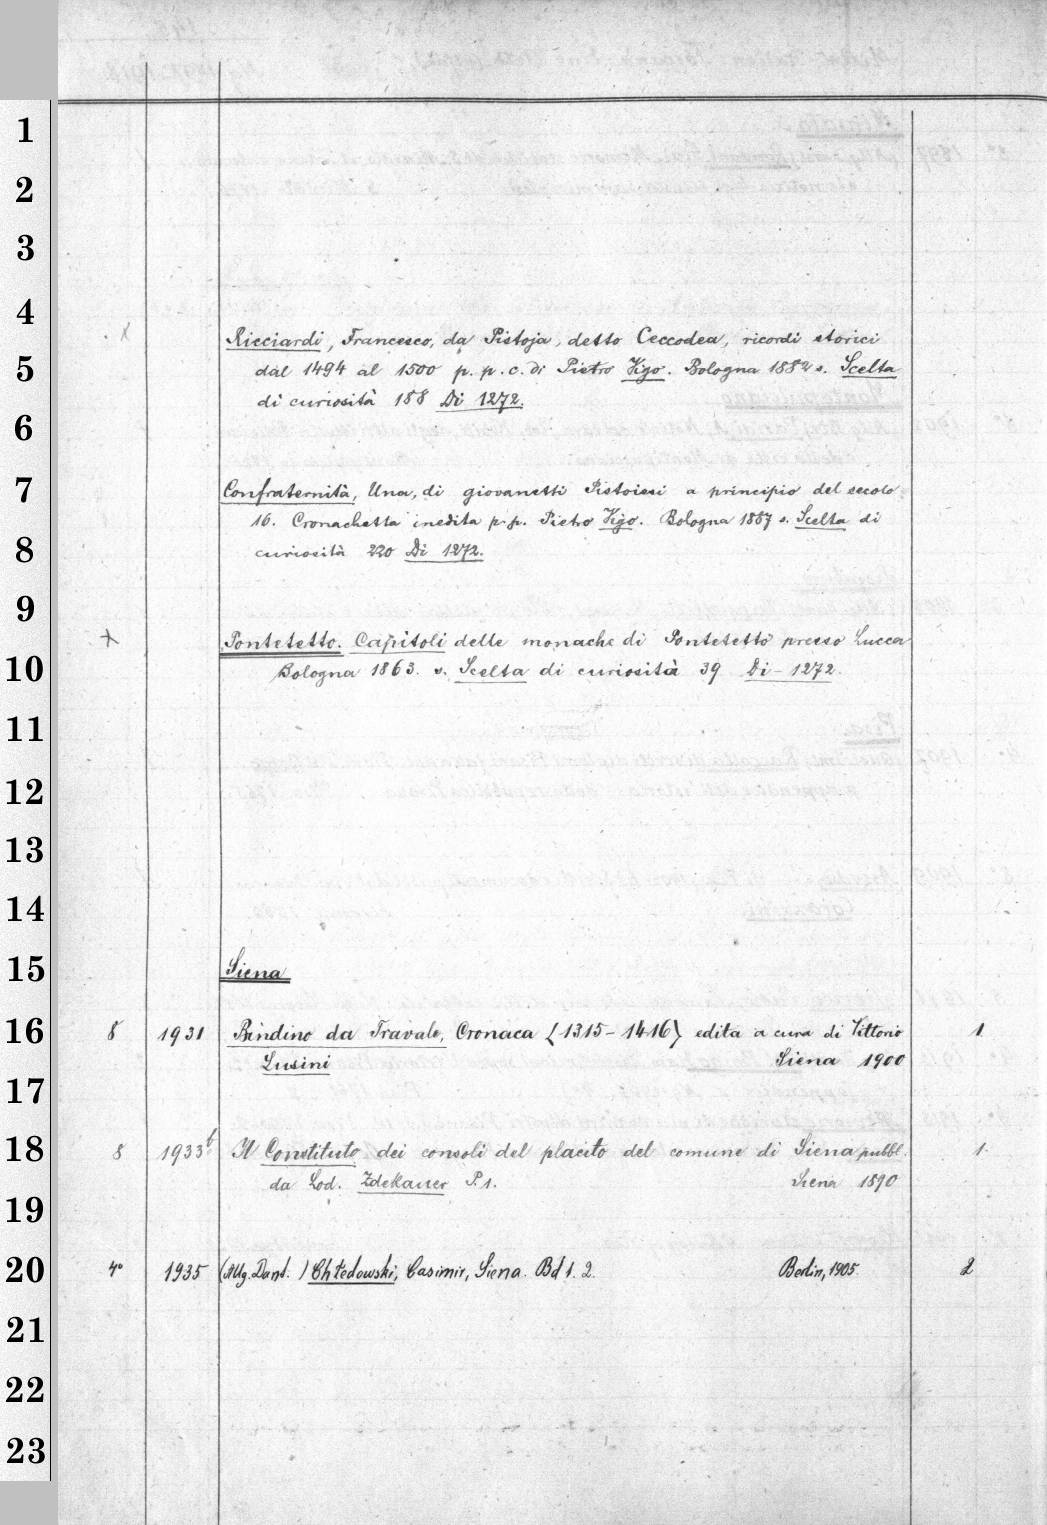 1
2
3
4
x Ricciardi, Francesco, da Pistoja, detto Ceccodea, ricordi storici
5
dal 1494 al 1500 p. p. c. di Pietro Vigo. Bologna 1882 s. Scelta
di curiosità 188 Di 1272.
6
7
Confraternità, Una, di giovanetti Pistoiesi a principio del secolo
16. Cronachetta inedita p. p. Pietro Vigo. Bologna 1887 s. Scelta di
8
curiosità 220 Di 1272.
9
x Pontetetto. Capitoli delle monache di Pontetetto presso Lucca
10
Bologna 1863. s. Scelta di curiosità 39 Di - 1272.
11
12
13
14
15
Siena
16
8 1931 Bindino da Travale, Cronaca (1315-1416) edita a cura di Vittorio 1
Lusini Siena 1900
17
18
8 1933b Il Constituto dei consoli del placito del comune di Siena pubbl. 1.
da Lod. Zdekauer P. 1. Siena 1890
19
20
4o 1935 (Allg. Darst.) Chłedowski, Casimir, Siena. Bd 1. 2. Berlin, 1905. 2
21
22
23